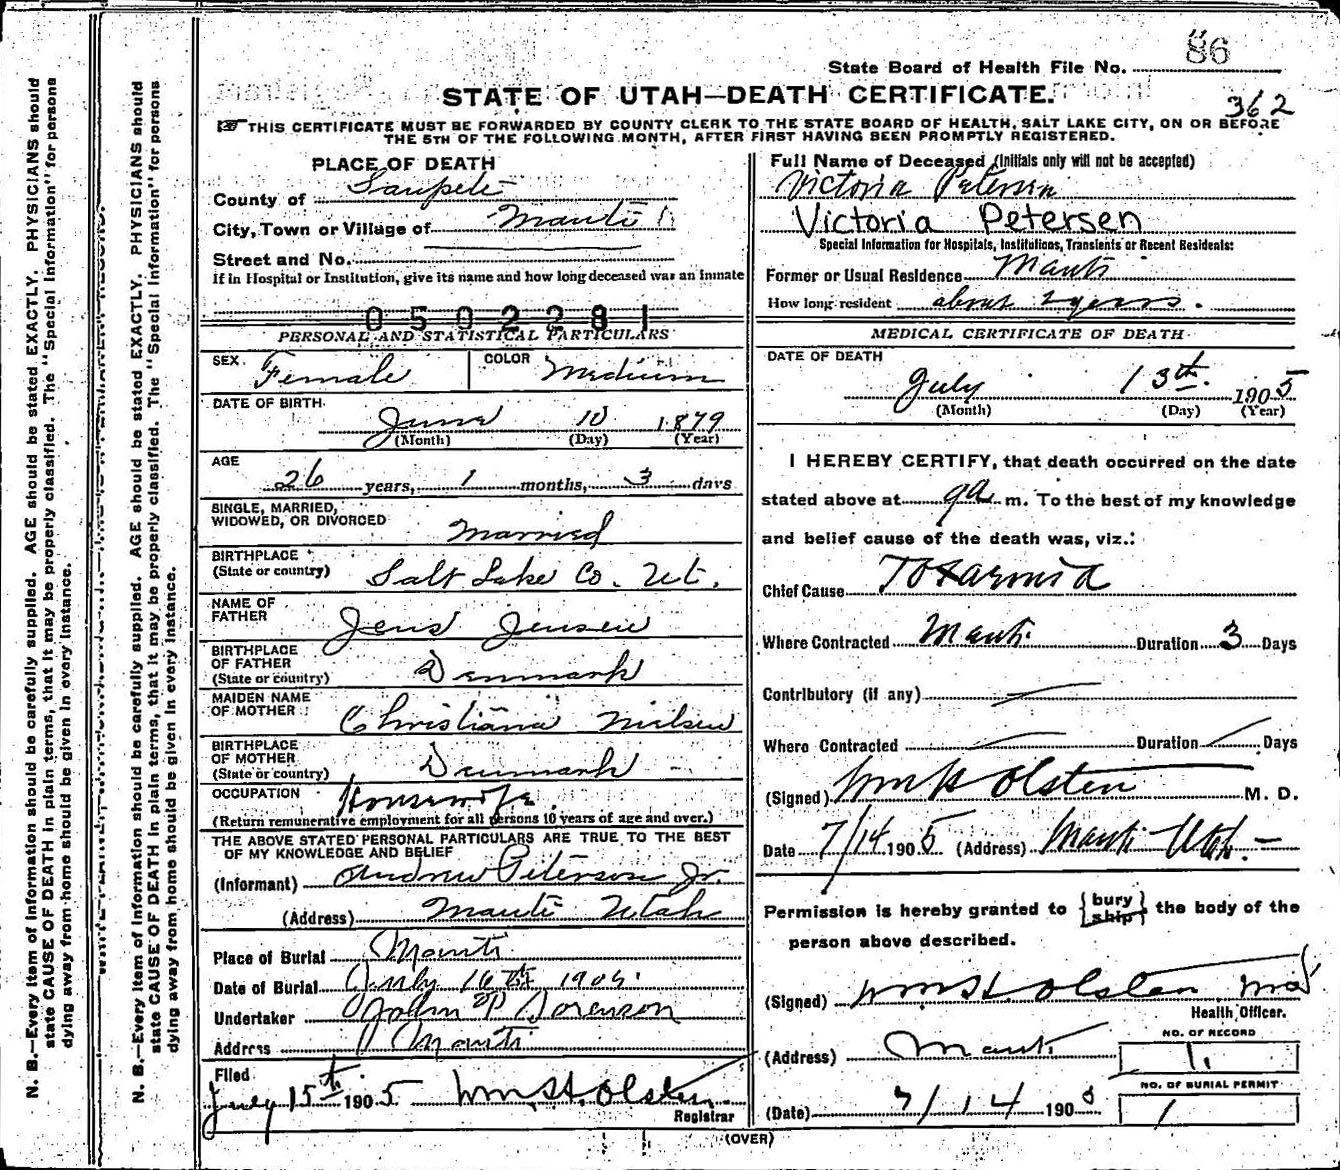 86
State Board of Health File No.
STATE OF UTAH—DEATH CERTIFICATE.
362
THIS CERTIFICATE MUST BE FORWARDED BY COUNTY CLERK TO THE STATE BOARD OF HEALTH, SALT LAKE CITY, ON OR BEFORE
THE 5TH OF THE FOLLOWING MONTH, AFTER FIRST HAVING BEEN PROMPTLY REGISTERED.
PLACE OF DEATH
County of Sanpete
City, Town or Village of Manti
Street and No.
If in Hospital or Institution, give its name and how long deceased was an inmate
0502281
PERSONAL AND STATISTICAL PARTICULARS
SEX Female COLOR Medium
DATE OF BIRTH
June 10 1879
(Month) (Day) (Year)
AGE
26 years, 1 months, 3 days
SINGLE, MARRIED,
WIDOWED, OR DIVORCED Married
BIRTHPLACE
(State or country) Salt Lake Co. Ut.
NAME OF
FATHER Jens Jensen
BIRTHPLACE
OF FATHER
(State or country) Denmark
MAIDEN NAME
OF MOTHER Christiana Nielsen
BIRTHPLACE
OF MOTHER
(State or country) Denmark
OCCUPATION Housewife
(Return remunerative employment for all persons 10 years of age and over.)
THE ABOVE STATED PERSONAL PARTICULARS ARE TRUE TO THE BEST
OF MY KNOWLEDGE AND BELIEF
(Informant) Andrew Peterson Jr.
(Address) Manti Utah
Place of Burial Manti
Date of Burial July 16th 1905
Undertaker John P Sorenson
Address Manti
Filed
July 15th 1905 Wm. H. Olsten
Registrar
Full Name of Deceased (Initials only will not be accepted)
Victoria Petersen
Victoria Petersen
Special Information for Hospitals, Institutions, Transients or Recent Residents:
Former or Usual Residence Manti
How long resident about 2 years.
MEDICAL CERTIFICATE OF DEATH
DATE OF DEATH
July 13th. 1905
(Month) (Day) (Year)
I HEREBY CERTIFY, that death occurred on the date
stated above at 9a m. To the best of my knowledge
and belief cause of the death was, viz.:
Chief Cause Toxaemia
Where Contracted Manti Duration 3 Days
Contributory (if any)
Where Contracted Duration Days
(Signed) Wm H Olsten M. D.
Date 7/14 1905 (Address) Manti Utah.
Permission is hereby granted to {bury ship} the body of the
person above described.
(Signed) Wm H. Olsten MD
Health Officer.
(Address) Manti
NO. OF RECORD
1.
(Date) 7/14 190
NO. OF BURIAL PERMIT
1
(OVER)
N. B.—Every item of information should be carefully supplied. AGE should be stated EXACTLY. PHYSICIANS should
state CAUSE OF DEATH in plain terms, that it may be properly classified. The "Special Information" for persons
dying away from home should be given in every instance.
N. B.—Every item of information should be carefully supplied. AGE should be stated EXACTLY. PHYSICIANS should
state CAUSE OF DEATH in plain terms, that it may be properly classified. The "Special Information" for persons
dying away from home should be given in every instance.